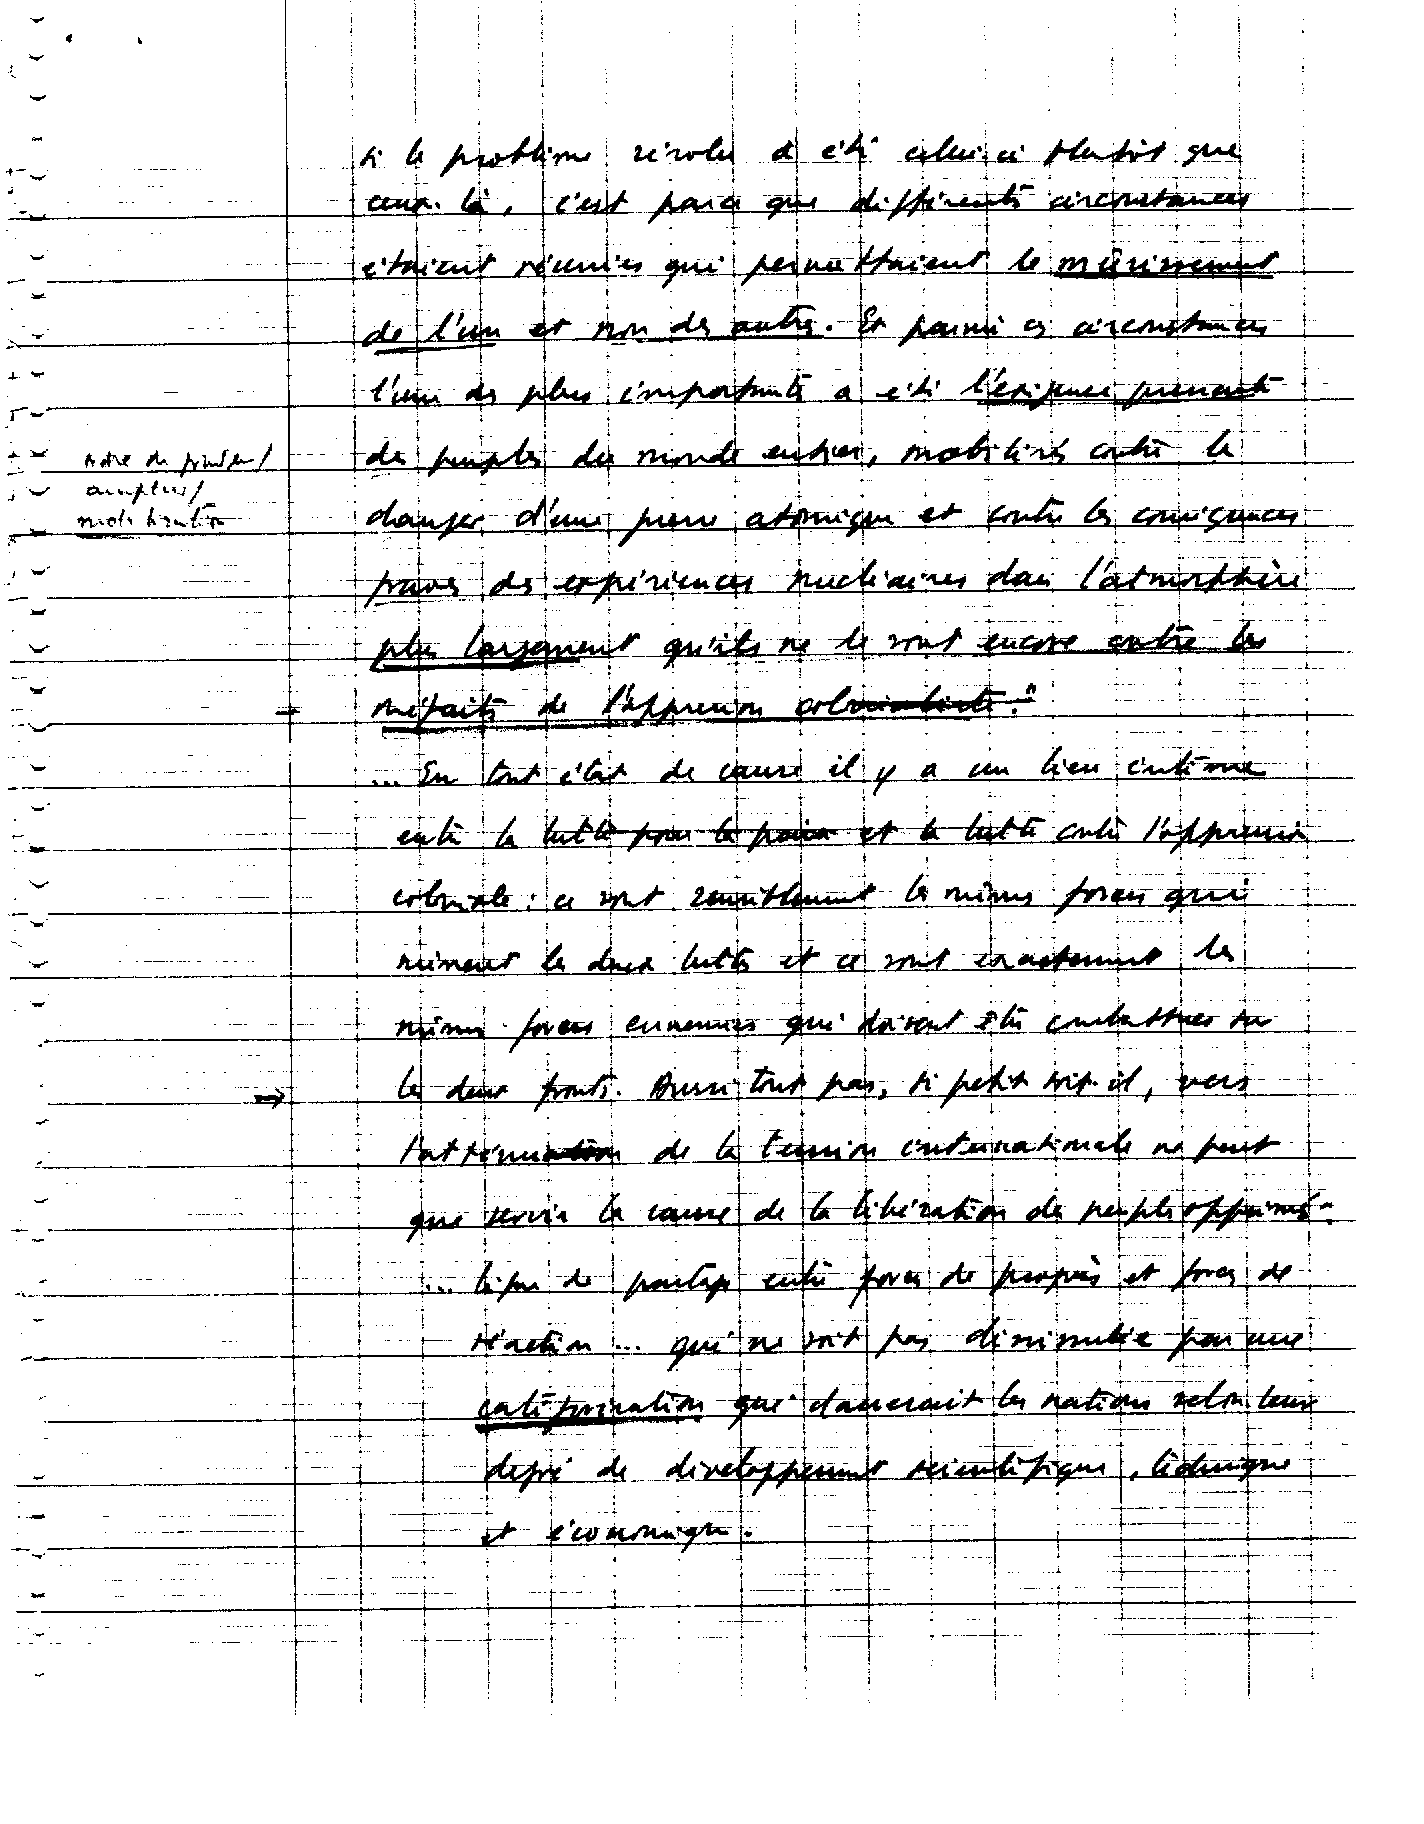 si le problème résolu a été celui-ci plutôt que
ceux-là, c'est parce que différentes circonstances
étaient réunies qui permettaient le mûrissement
de l'un et non des autres. Et parmi ces circonstances
l'une des plus importantes a été l'exigence pressante
des peuples du monde entier, mobilisés contre le
mobilisation
danger d'une guerre atomique et contre les conséquences
graves des expériences nucléaires dans l'atmosphère
plus largement qu'ils ne le sont encore contre les
méfaits de l'oppression colonialiste."
... En tout état de cause il y a un lien intime
entre la lutte pour la paix et la lutte contre l'oppression
coloniale : ce sont les mêmes forces qui
mènent les deux luttes et ce sont exactement les
mêmes forces ennemies qui doivent être combattues sur
→ les deux fronts. Aussi tout pas, si petit soit-il, vers
l'atténuation de la tension internationale ne peut
que servir la cause de la libération des peuples opprimés.
... ligne de partage entre forces de progrès et forces de
réaction ... qui ne soit pas dissimulée par une
catégorisation qui classerait les nations selon leur
degré de développement scientifique, technique
et économique.